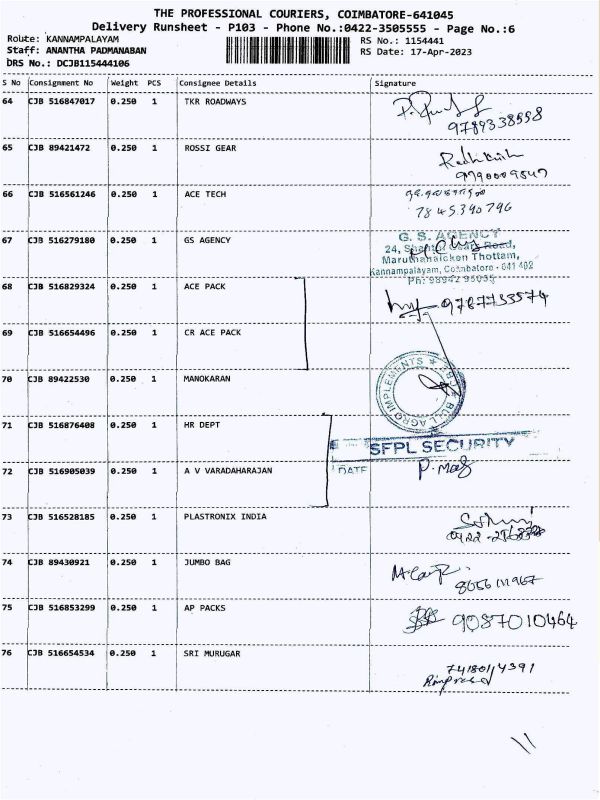 THE PROFESSIONAL COURIERS, COIMBATORE-641045
Delivery Runsheet - P103 - Phone No.:0422-3505555 - Page No.:6
Route: KANNAMPALAYAM
RS No.: 1154441
Staff: ANANTHA PADMANABAN
RS Date: 17-Apr-2023
DRS No.: DCJB115444106
S No Consignment No Weight PCS Consignee Details Signature
64 CJB 516847017 0.250 1 TKR ROADWAYS
9789338558
65 CJB 89421472 0.250 1 ROSSI GEAR
9790009547
66 CJB 516561246 0.250 1 ACE TECH
7845390796
67 CJB 516279180 0.250 1 GS AGENCY
G. S. AGENCY
24, Road,
Maruthanaicken Thottam,
Kannampalayam, Coimbatore - 641 402
Ph: 98942 95035
68 CJB 516829324 0.250 1 ACE PACK
9787733574
69 CJB 516654496 0.250 1 CR ACE PACK
70 CJB 89422530 0.250 1 MANOKARAN
BULL AGRO IMPLEMENTS
71 CJB 516876408 0.250 1 HR DEPT
SFPL SECURITY
72 CJB 516905039 0.250 1 A V VARADHARAJAN
DATE
73 CJB 516528185 0.250 1 PLASTRONIX INDIA
74 CJB 89430921 0.250 1 JUMBO BAG
75 CJB 516853299 0.250 1 AP PACKS
9087010464
76 CJB 516654534 0.250 1 SRI MURUGAR